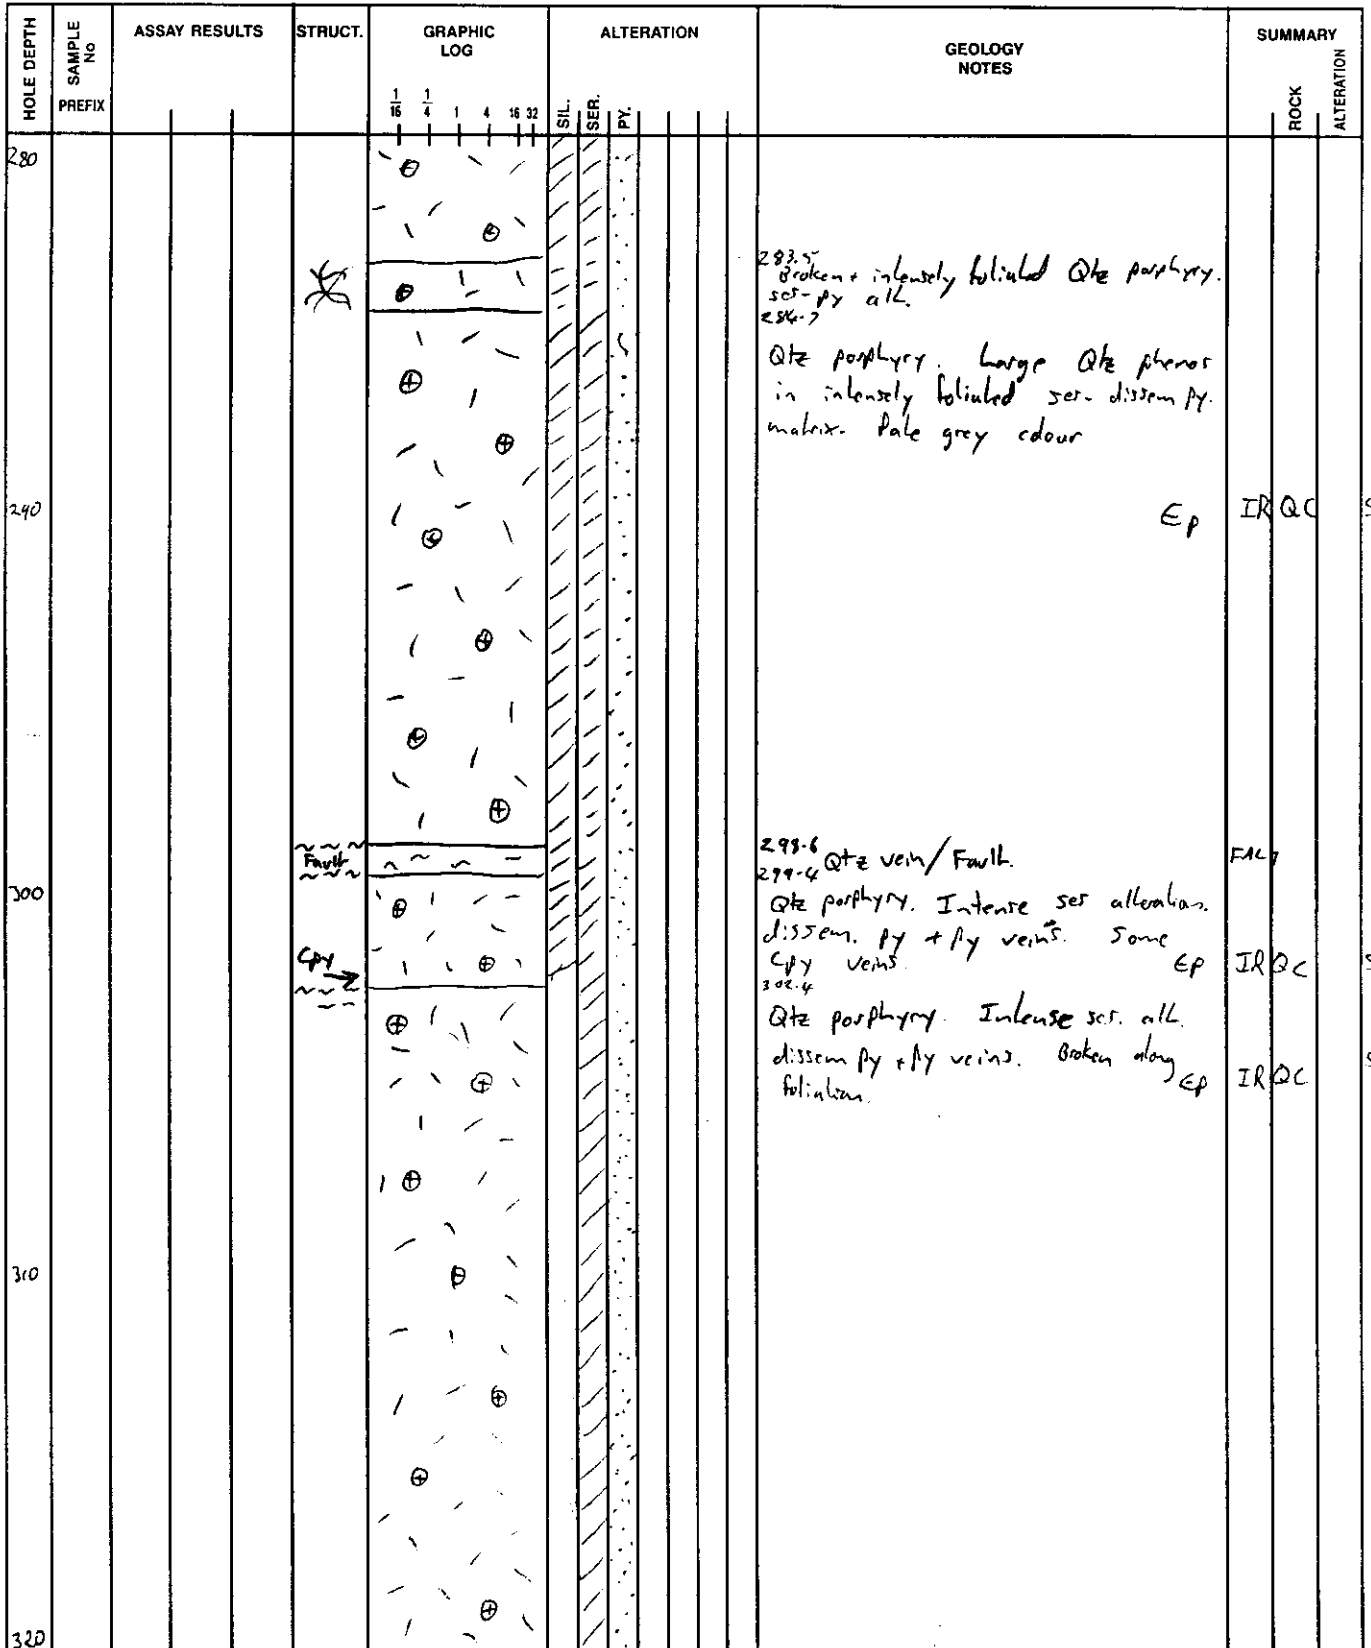 HOLE DEPTH
SAMPLE No
PREFIX
ASSAY RESULTS
STRUCT.
GRAPHIC
LOG
1/16 1/4 1 4 16 32
ALTERATION
SIL. SER. PY.
GEOLOGY
NOTES
SUMMARY
ROCK
ALTERATION
280
283.5
Broken + intensely foliated Qtz porphyry.
ser-py alt.
284.7
Qtz porphyry. Large Qtz phenos
in intensely foliated ser- dissem py.
matrix. Pale grey colour
290
Ep IR QC
298.6
Fault
Qtz vein/Fault.
299.4
300
Qtz porphyry. Intense ser alteration.
dissem. py + py veins. Some
Cpy veins. Ep IR QC
Cpy
302.4
Qtz porphyry. Intense ser. alt.
dissem py + py veins. Broken along
foliation. Ep IR QC
310
320